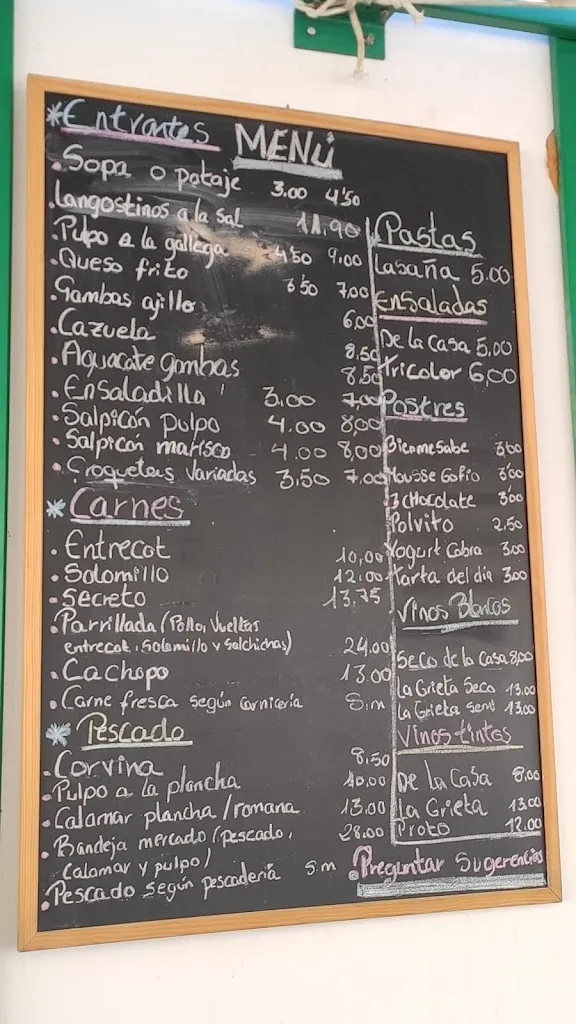 MENÚ
*Entrantes
.Sopa o potaje 3.00 4'50
.Langostinos a la sal 11.90
.Pulpo a la gallega 4'50 9,00
.Queso frito 3'50 7,00
.Gambas ajillo 6,00
.Cazuela 8.50
.Aguacate gambas 8.50
.Ensaladilla 3,00 7,00
.Salpicón pulpo 4.00 8,00
.Salpicón marisco 4.00 8,00
.Croquetas variadas 3,50 7.00
*Carnes
.Entrecot 10,00
.Solomillo 12.00
.Secreto 13,75
.Parrillada (Pollo, Vueltas
entrecot, Solomillo y Salchichas) 24.00
.Cachopo 13.00
.Carne fresca según carnicería S.m
*Pescado
.Corvina 8,50
.Pulpo a la plancha 10,00
.Calamar plancha/romana 13.00
.Bandeja mercado (pescado,
calamar y pulpo) 28.00
.Pescado según pescadería S.m
Pastas
Lasaña 5.00
Ensaladas
De la casa 5,00
Tricolor 6,00
Postres
Bienmesabe 3'00
Mousse Gofio 3'00
3 chocolate 3'00
Polvito 2.50
Yogurt Cabra 3.00
Tarta del día 3.00
Vinos Blancos
Seco de la Casa 8,00
La Grieta Seco 13.00
La Grieta Semi 13,00
Vinos tintos
De La Casa 8.00
La Grieta 13.00
Proto 12.00
.Preguntar Sugerencias